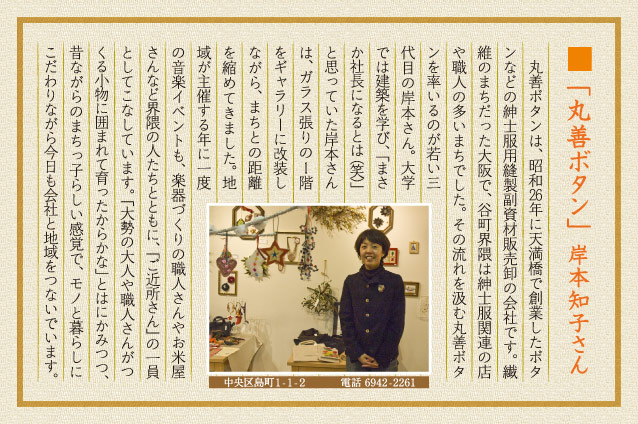 ■「丸善ボタン」 岸本知子さん
丸善ボタンは、昭和26年に天満橋で創業したボタ
ンなどの紳士服用縫製副資材販売卸の会社です。繊
維のまちだった大阪で、谷町界隈は紳士服関連の店
や職人の多いまちでした。その流れを汲む丸善ボタ
ンを率いるのが若い三
代目の岸本さん。大学
では建築を学び、「まさ
か社長になるとは(笑)」
と思っていた岸本さん
は、ガラス張りの1階
をギャラリーに改装し
ながら、まちとの距離
を縮めてきました。地
域が主催する年に一度
の音楽イベントも、楽器づくりの職人さんやお米屋
さんなど界隈の人たちとともに、「ご近所さん」の一員
としてこなしています。「大勢の大人や職人さんがつ
くる小物に囲まれて育ったからかな」とはにかみつつ、
昔ながらのまちっ子らしい感覚で、モノと暮らしに
こだわりながら今日も会社と地域をつないでいます。
中央区島町1-1-2 電話 6942-2261